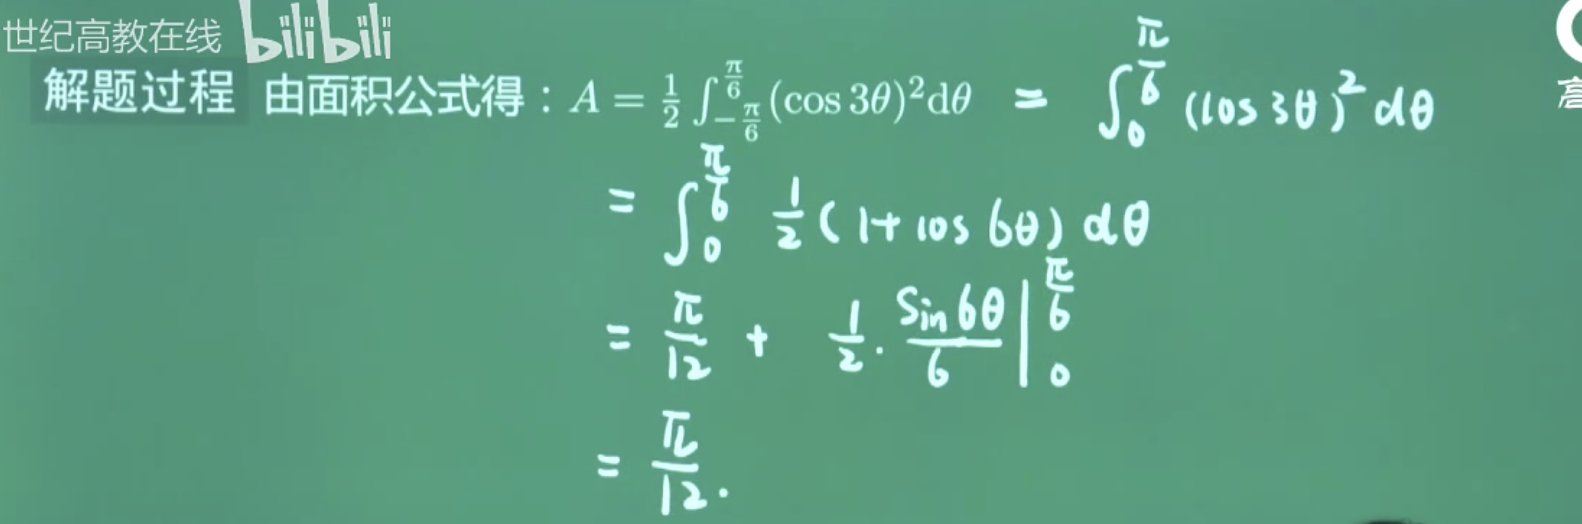 世纪高教在线 bilibili
解题过程 由面积公式得：A = \frac{1}{2} \int_{-\frac{π}{6}}^{\frac{π}{6}} (cos 3θ)²dθ = \int_{0}^{\frac{π}{6}} (cos 3θ)² dθ
= \int_{0}^{\frac{π}{6}} \frac{1}{2} (1+ cos 6θ) dθ
= \frac{π}{12} + \frac{1}{2} · \frac{sin 6θ}{6} |_{0}^{\frac{π}{6}}
= \frac{π}{12}.